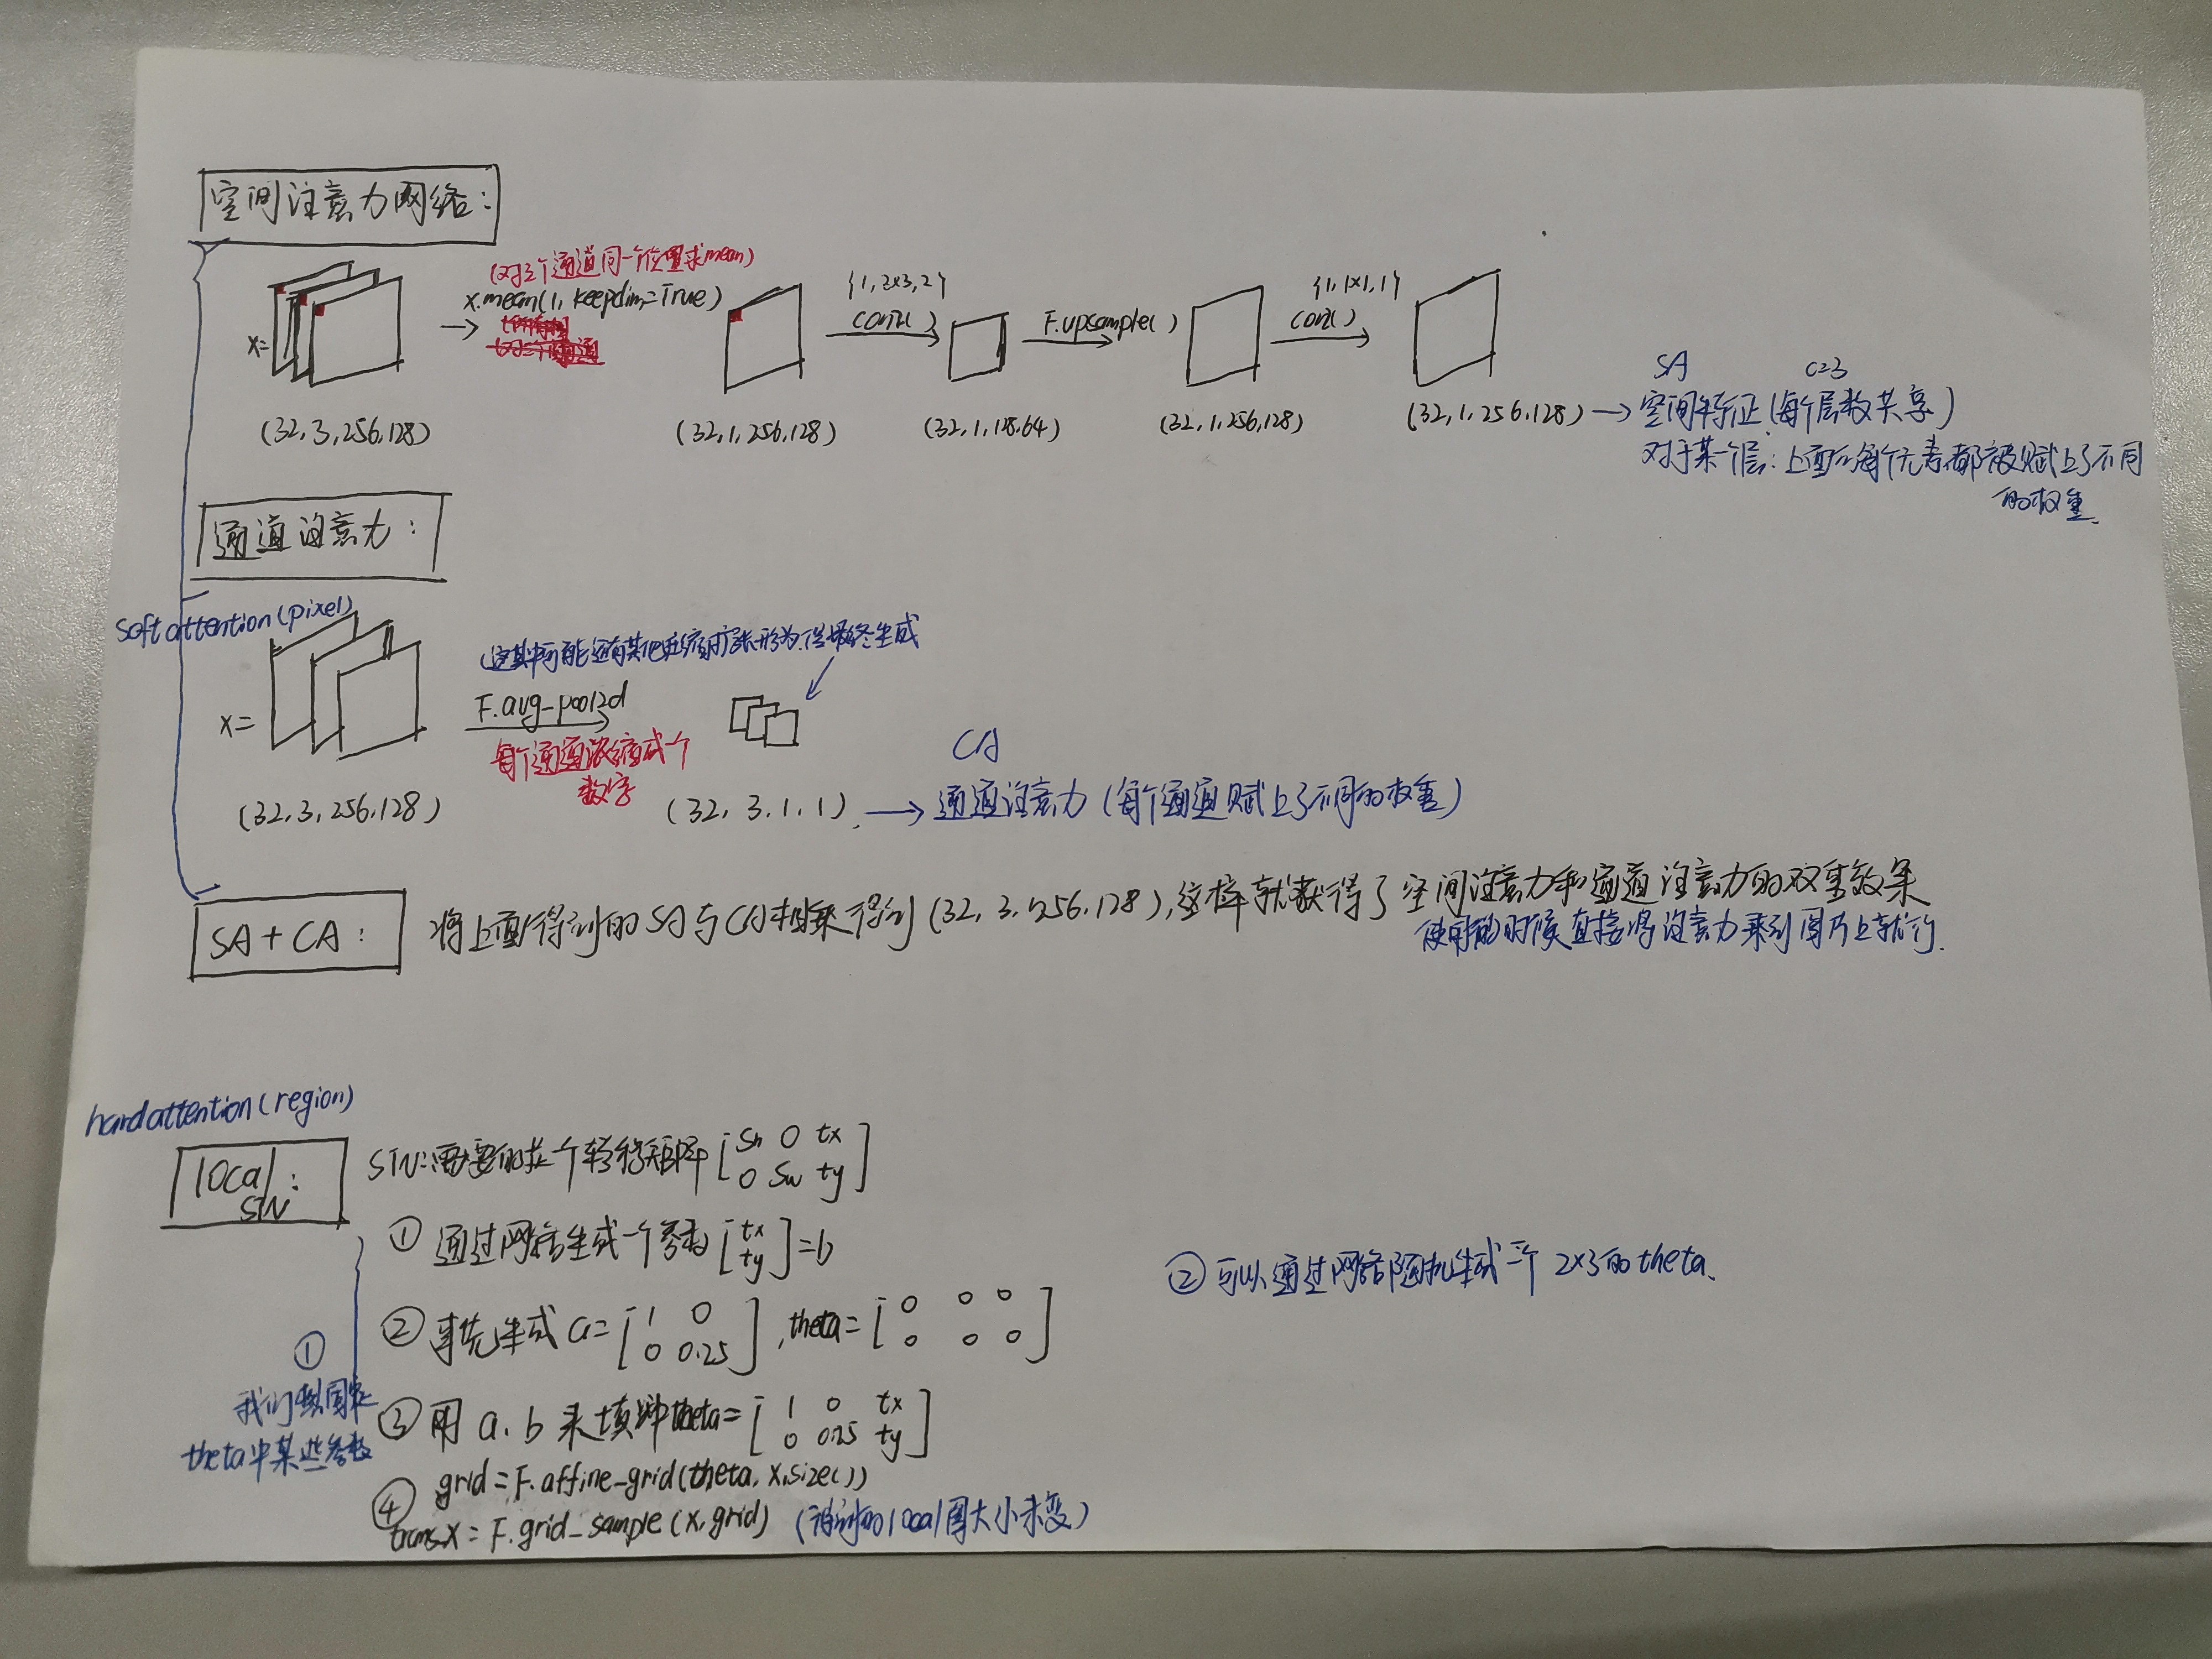 空间注意力网络:
(对三个通道同一个位置求mean)
x.mean(1, keepdim=True)
{1, 2x3, 2}
conv()
F.upsample()
{1, 1x1, 1}
conv()
x=
(32, 3, 256, 128)
(32, 1, 256, 128)
(32, 1, 128, 64)
(32, 1, 256, 128)
(32, 1, 256, 128) →
SA
c=3
空间特征 (每个层数共享)
对于某一个层: 上面的每个元素都被赋上了不同
的权重
通道注意力:
soft attention (pixel)
(这其中可能还有其他压缩扩张形为,但最终生成
x=
F.avg_pool2d
每个通道浓缩成一个
数字
(32, 3, 256, 128)
(32, 3, 1, 1) →
CA
通道注意力 (每个通道赋上了不同的权重)
SA + CA:
将上面得到的SA与CA相乘得到 (32, 3, 256, 128), 这样就获得了空间注意力和通道注意力的双重效果
使用的时候直接将注意力乘到图片上就行.
hard attention (region)
local:
STN
STN:需要的是一个转移矩阵 [sh 0 tx
0 sw ty]
① 通过网络生成一个参数 [tx
ty] = b
② 事先生成 a = [1 0
0 0.25], theta = [0 0 0
0 0 0]
② 可以通过网络随机生成一个 2x3的theta.
①
我们 固定
theta中某些参数
③ 用 a, b 来填充theta = [1 0 tx
0 0.25 ty]
④ grid = F.affine_grid(theta, x.size())
trans_x = F.grid_sample(x, grid) (得到的local图大小未变)